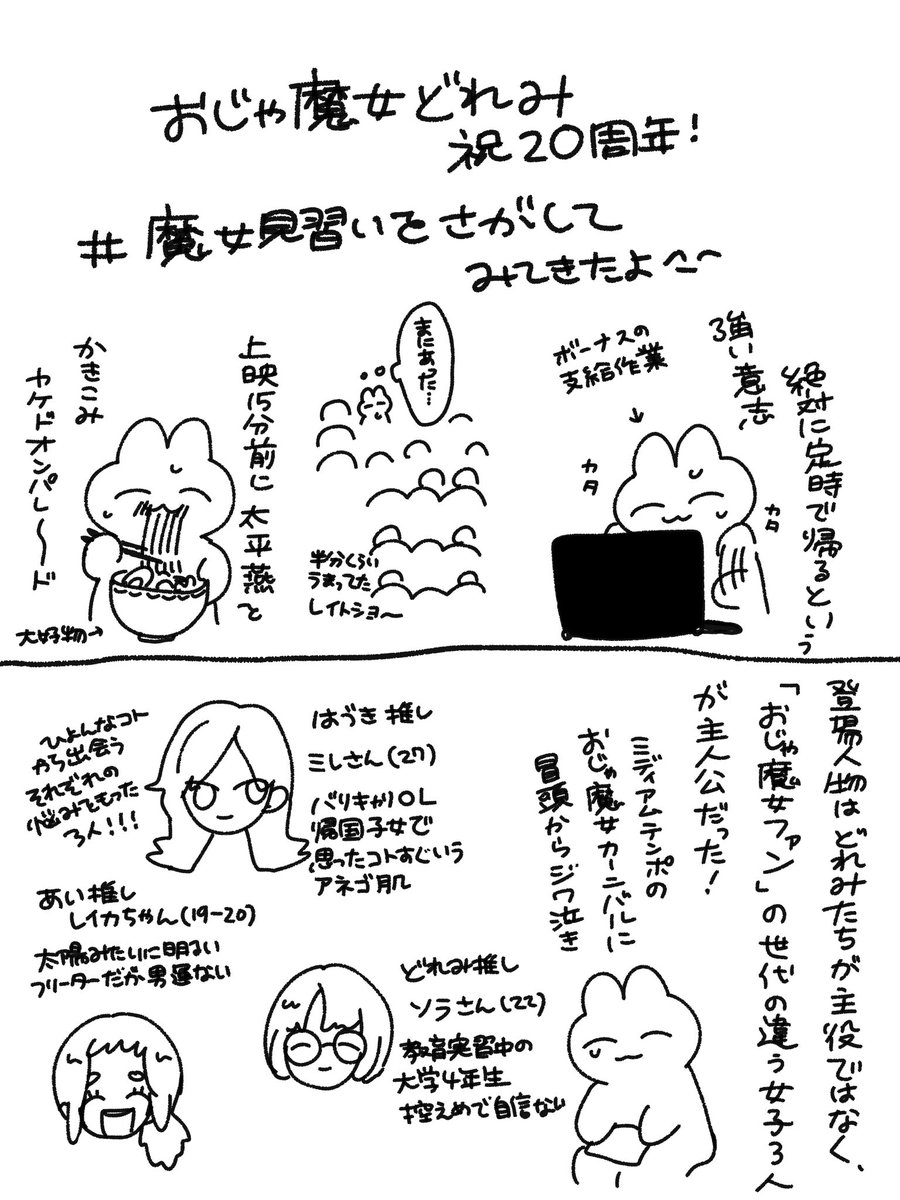 おじゃ魔女どれみ
祝20周年!
#魔女見習いをさがして
みてきたよ^-^
絶対に定時で帰るという
強い意志
ボーナスの
支給作業
カタ
カタ
まにあった…
半分くらい
うまってた
レイトショー
上映15分前に太平燕を
かきこみ
ヤケドオンパレ〜ド
大好物→
登場人物はどれみたちが主役ではなく、
「おじゃ魔女ファン」の世代の違う女子3人
が主人公だった!
ミディアムテンポの
おじゃ魔女カーニバルに
冒頭からジワ泣き
はづき推し
ミレさん(27)
バリキャリOL
帰国子女で
思ったコトすぐいう
アネゴ肌
ひょんなコト
から出会う
それぞれの
悩みをもった
3人!!!
どれみ推し
ソラさん(22)
教育実習中の
大学4年生
控えめで自信ない
あい推し
レイカちゃん(19-20)
太陽みたいに明るい
フリーターだが男運ない